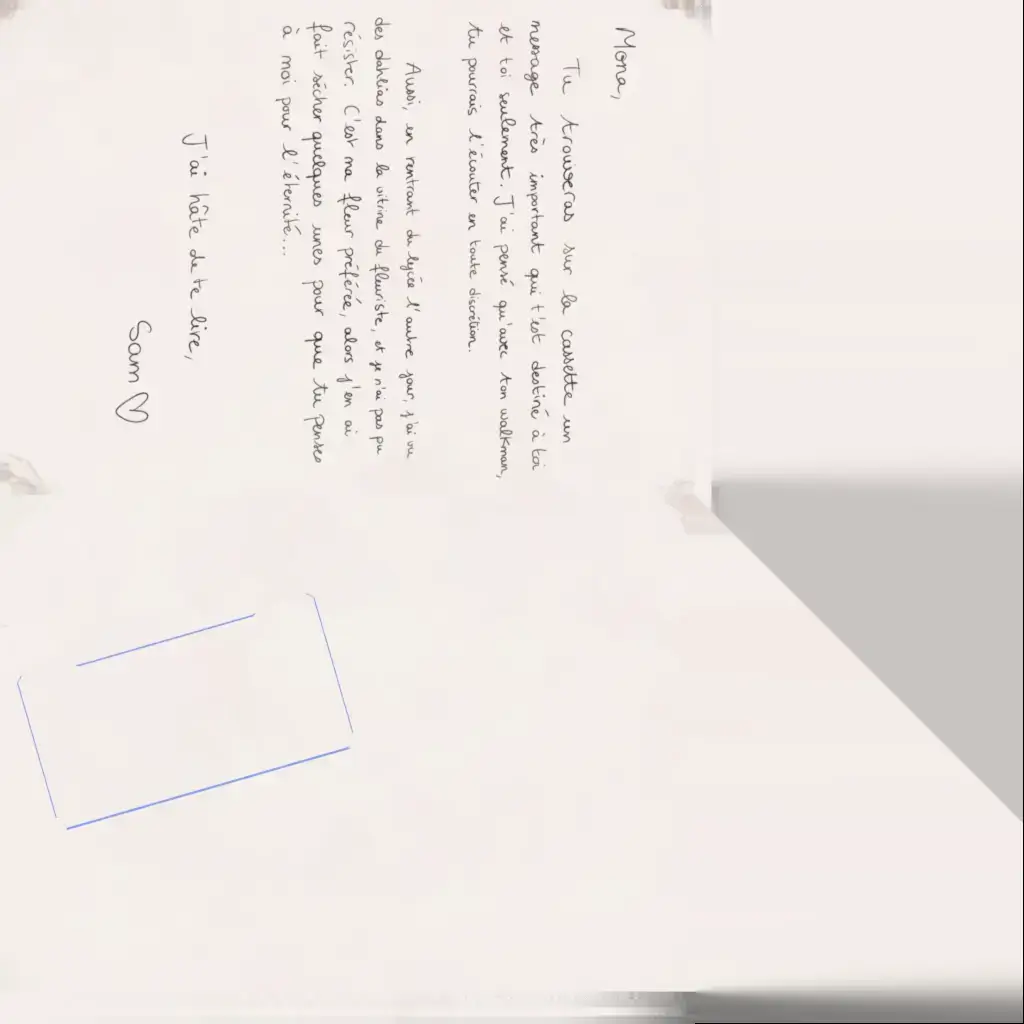 Mona,
Tu trouveras sur la cassette un
message très important qui t'est destiné à toi
et toi seulement. J'ai pensé qu'avec ton walkman,
tu pourrais l'écouter en toute discrétion.
Aussi, en rentrant du lycée l'autre jour, j'ai vu
des dahlias dans la vitrine du fleuriste, et je n'ai pas pu
résister. C'est ma fleur préférée, alors j'en ai
fait sécher quelques unes pour que tu penses
à moi pour l'éternité...
J'ai hâte de te lire,
Sam ♡